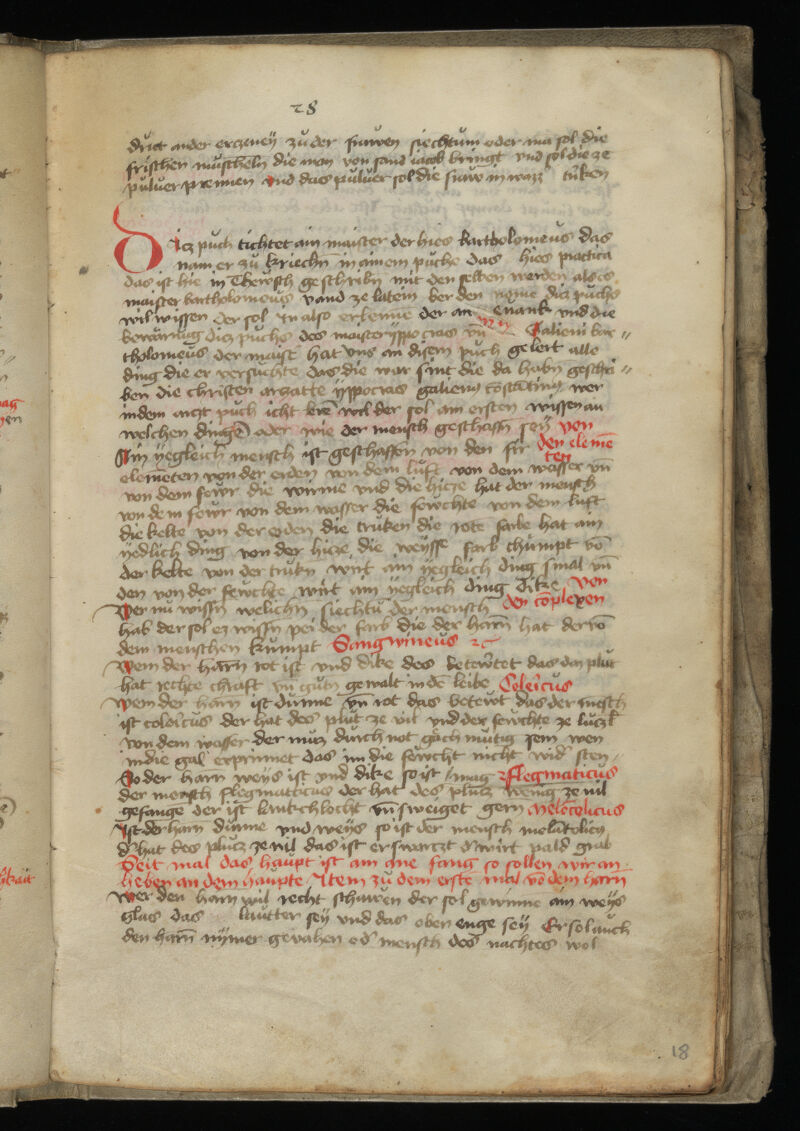 28
ander erczeney zu der frawen siechtum oder man sol die
frischen muscheln die man von sand iacob bringt vnd sol die ze
puluer prennen vnd das puluer sol die fraw in wazz trinken
Dicz puch tichtet ain maister der hies Bartholomeus das
nam er zu kriechn in ainem puche das hies practica
das ist hie in Tkewsch geschribn mit den selben werden als es
maister bartholomeus vand ze latein Ber den nyme dicz puchs
wil wissen der sol in also erkenne der an
bewarnug dicz puchs des maister yppocras vn̄ Galieni bar=
tholomeus der maist hat vns an disem puch gelert alle
ding die er versuchte das die war sint die da habn geschri=
ben die christen arczatte yppocras galienus costātinus wer
in dem arczt puch icht lern̄ wil der sol am ersten wissen an
welchen dingē oder wie der mensch geschaffn sey von
Ain yegleich mensch ist geschaffen von den fir den eleme
ten
elemēten von der erden von dem luft von dem wasser vn̄
von dem fewr die wirme vnd die hicze hat der mensch
von dem fewr von dem wasser die fewchte von dem luft
die kelte von der erden die truken die rote farbe hat ain
yedlich ding von der hicze die weysse farb chumpt vō
der kelte von der trukn wirt ain yegleich ding smal vn̄
den von der fewchte wirt ain yegleich ding dike von
Wer nu wissn welichn siechtū der mensch den cōplexen
hab der sol ez wissn pei der farb die der harn̄ hat der vō
dem menschen kumpt Sangwineus
Wem der harn̄ rot ist vnd dike des betewtet das den plut
hat rechte chraft vn̄ gutn gewalt in dē leibe Coleicus
Wem der harn ist dunne vn̄ rot das betewt das der mēsch
ist coloicus der hat des plut ze vil vnd der fewchte ze luczl
von dem wasser der mus durch not gach mutig sein wen
in die gal erprinnet das im die fewcht nicht wid sten
So der harn weys ist vnd dike so ist mag Flegmaticus
der mensch flegmatticus der hat des plucz wenig ze vil
gefange der ist vn̄ sweiget gern Melēcolicus
Ist der harn dunne vnd weys so ist der mensch
d hat des plucz ze vil das ist erswarczt d wirt pald grab
Seit mal das haupt ist am ane fang so sollen wir an
heben an dem haupte Item zu dem erste mal vō dem harn̄
Wer den harn wil recht schawen der sol gewinne ain weys
glas das lautter sey vnd das oben enge sey Er sol auch
den harn̄ nymer gevahen ed mensch des nachtes wol
18